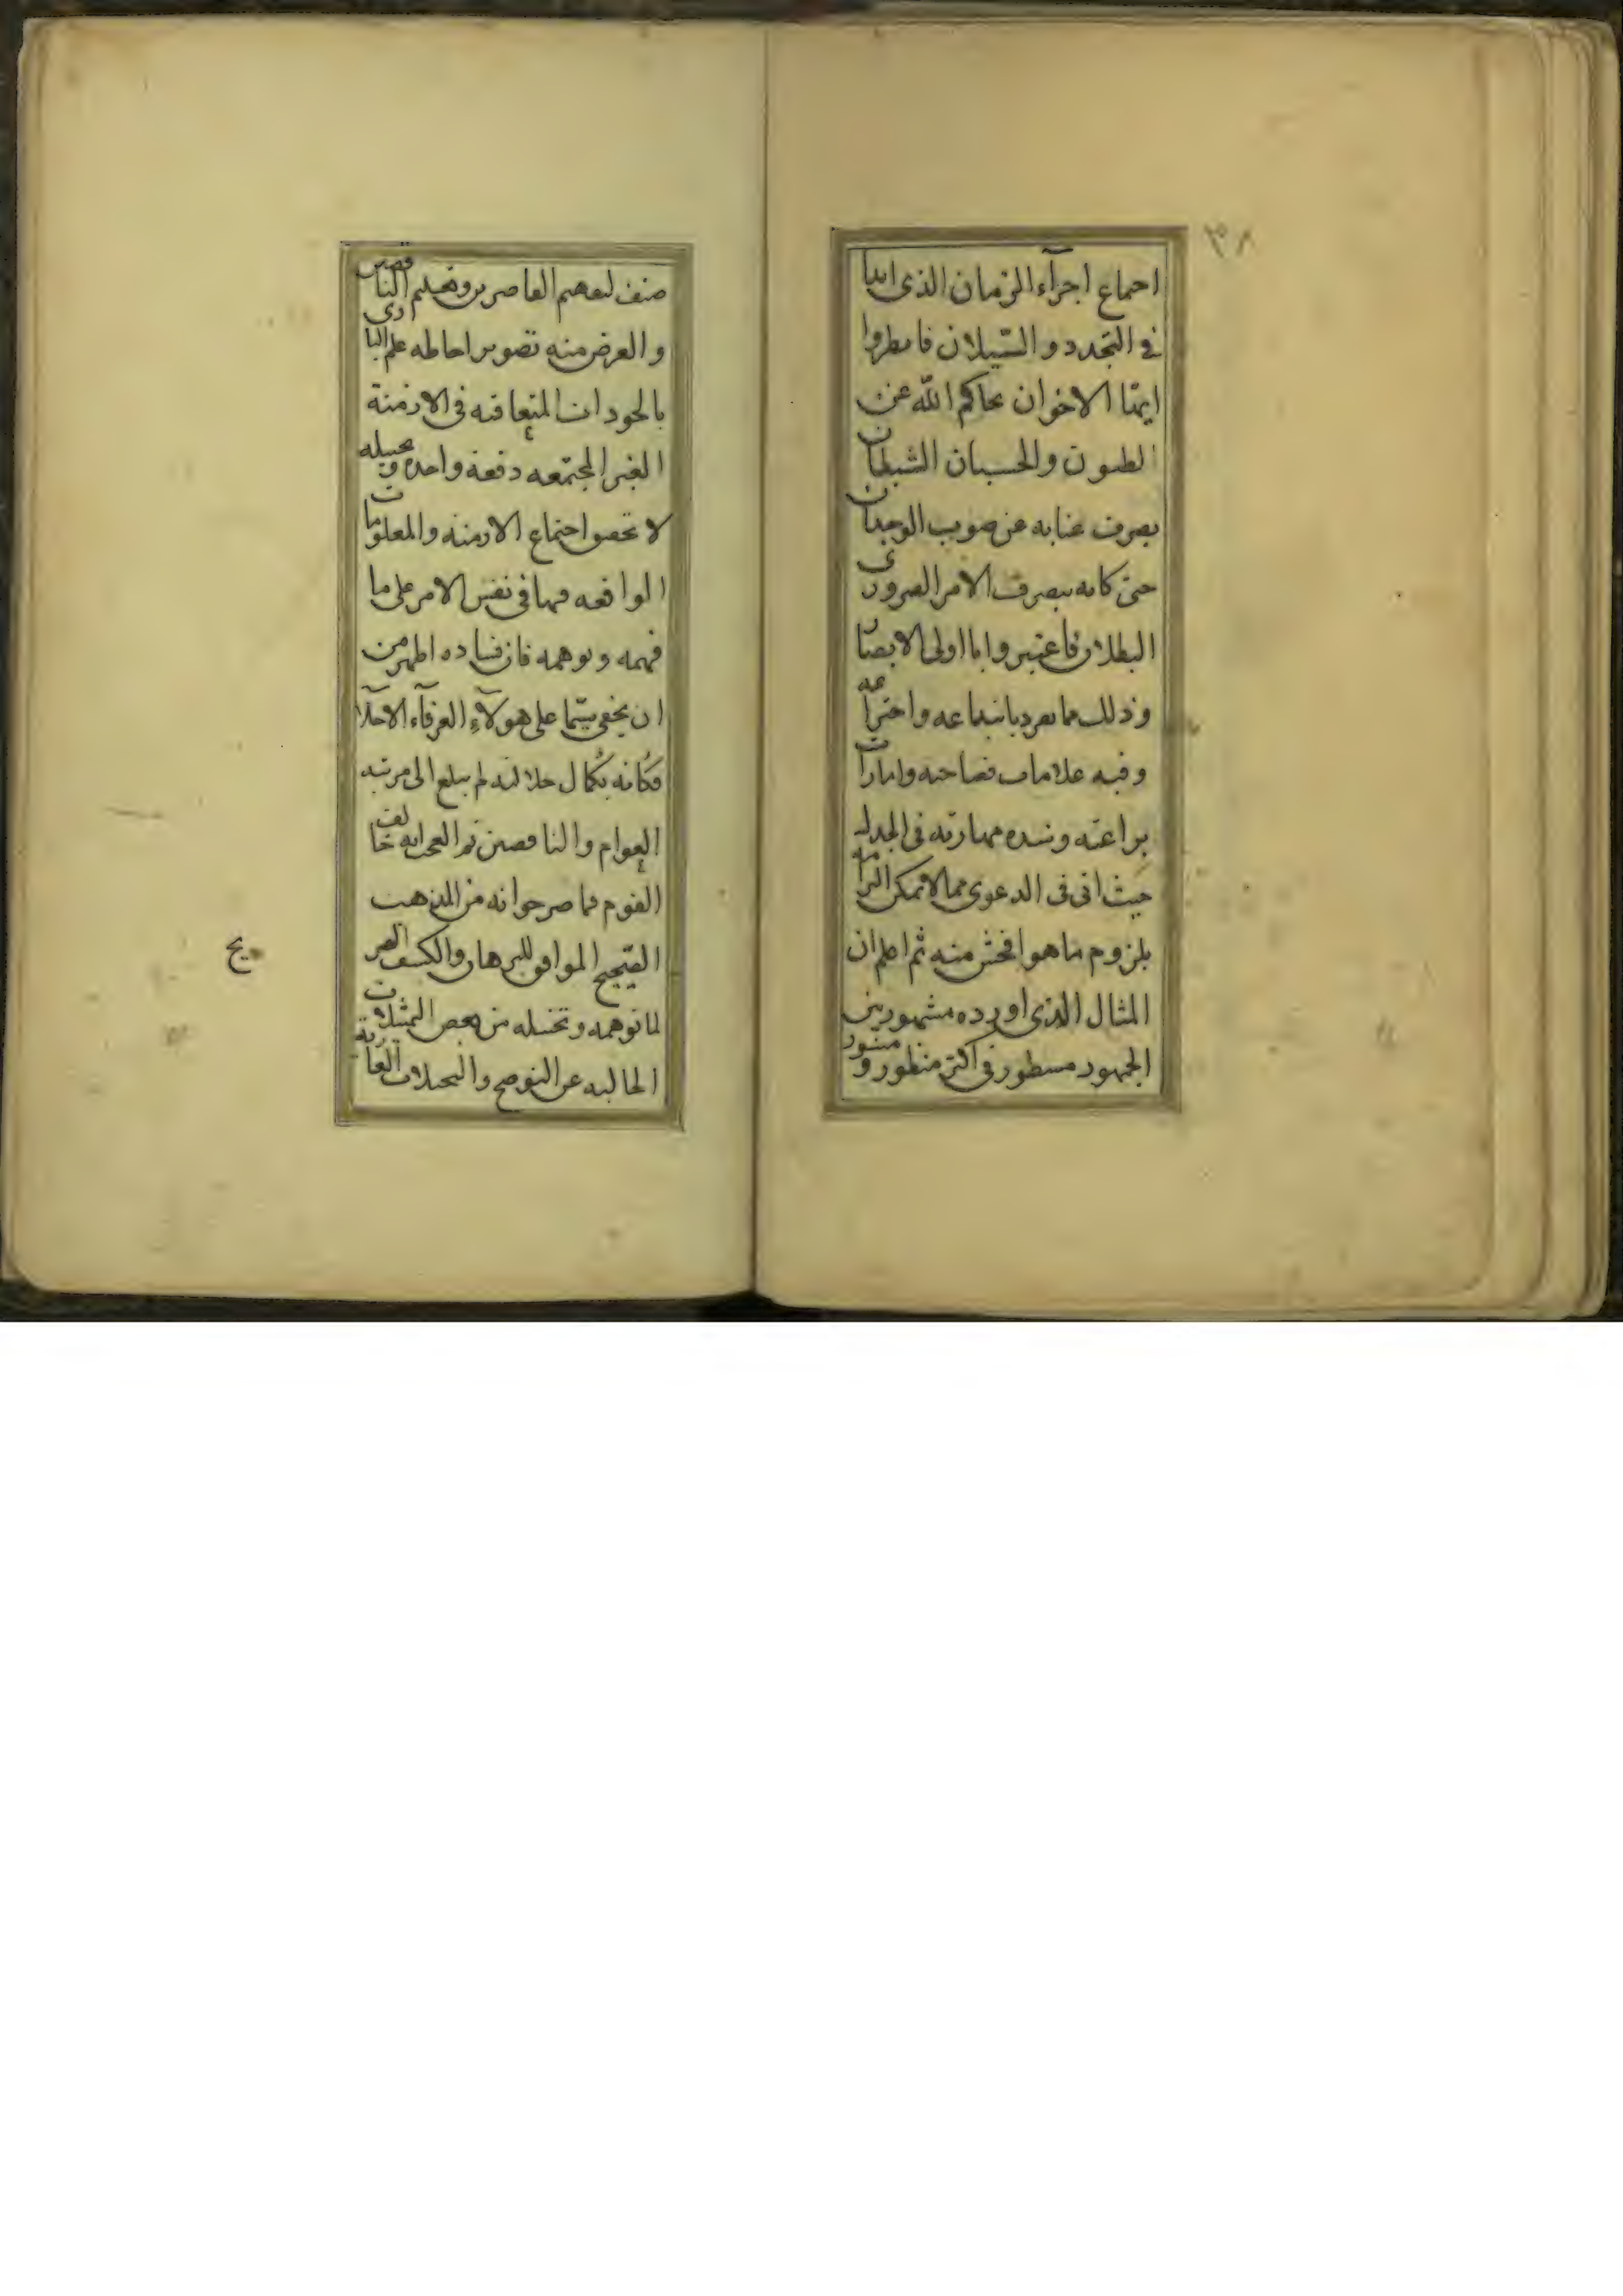 ٣٨
احماع اجزآء الزمان الذى ابدا
فى التجدد و السّيلان فانظروا
ايهّا الاخوان نحاكم اللّه عن
الظنون والحسبان الشيطان
يصرف عنانه عن صوب الوجدان
حتى كانه يصرف الامر الضرورى
البطلان فاعتبروا يا اولى الابصار
وذلك مما تفرد بابتداعه واختراعه
وفيه علامات فصاحته وامارات
براعته وشده مهارته فى الجدل
حيث اتى فى الدعوى مما لا يمكن الزامه
بلزوم ما هو افحش منه ثم اعلم ان
المثال الذى اورده مشهور بين
الجمهور مسطور فى اكثر منظور و منثور
صنف لتفهيم القاصرين وتعليم الناقصين
و الغرض منه تصوير احاطه علم البارى
بالحوداث المتعاقبه فى الازمنة
الغير المجتمعه دفعة واحده وتخيله
لا تحقق اجتماع الازمنه والمعلومات
الواقعه فيها فى نفس الامر على ما
فهمه و توهمه فان فساده اظهر من
ان يخفى سيّما على هولآء العرفآء الاجلآء
فكانه بكمال جلالته لم يبلغ الى مرتبه
العوام والناقصين ثم العجب انه خالف
القوم فما صرحوا به من المذهب
الصّحيح الموافق للبرهان والكشف الصريح
لما توهمه وتخيله من بعض التمثيلات
الخاليه عن التوضيح والتخيلات العارية